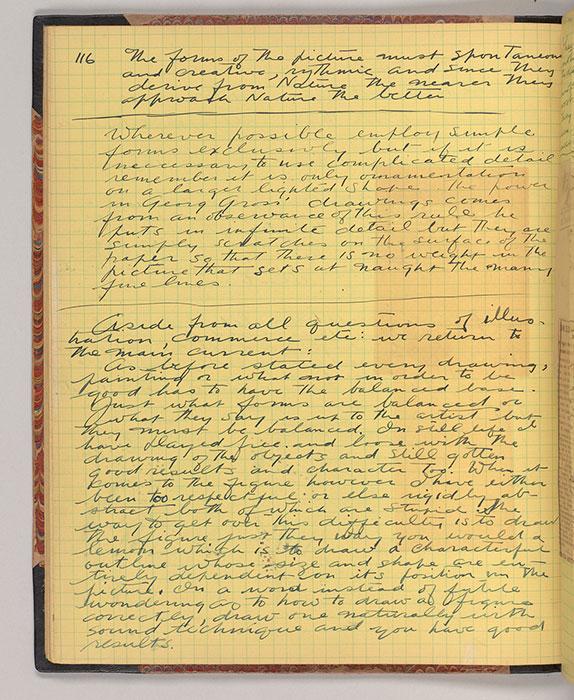 116 The forms of the picture must spontaneous
and creative, rythmic and since they
derive from Nature the nearer they
approach Nature the better
Wherever possible employ simple
forms exclusively but if it is
neccessary to use complicated detail
remember it is only ornamentation
on a larger lighted shape. The power
in Georg Gross' drawings comes
from an observance of this rule. he
puts in infinite detail but they are
simply scratches on the surface of the
paper so that there is no weight in the
picture that sets at naught the many
fine lines.
Aside from all questions of illus-
tration, commerce etc: we return to
the main current:
As before stated every drawing,
painting or what not in order to be
good has to have the balanced base.
Just what forms are balanced or
what they say is up to the artist but
they must be balanced. In still life I
have played free and loose with the
drawing of the objects and still gotten
good results and character too. When it
comes to the figure however I have either
been too respectful or else rigidly ab-
stract both of which are stupid. The
way to get over this difficulty is to draw
the figure just they way you would a
lemon which is to draw a characterful
outline whose size and shape are en-
tirely dependent on its position in the
picture. In a word instead of futile
wondering as to how to draw a figure
correctly, draw one naturally with
sound technique and you have good
results.